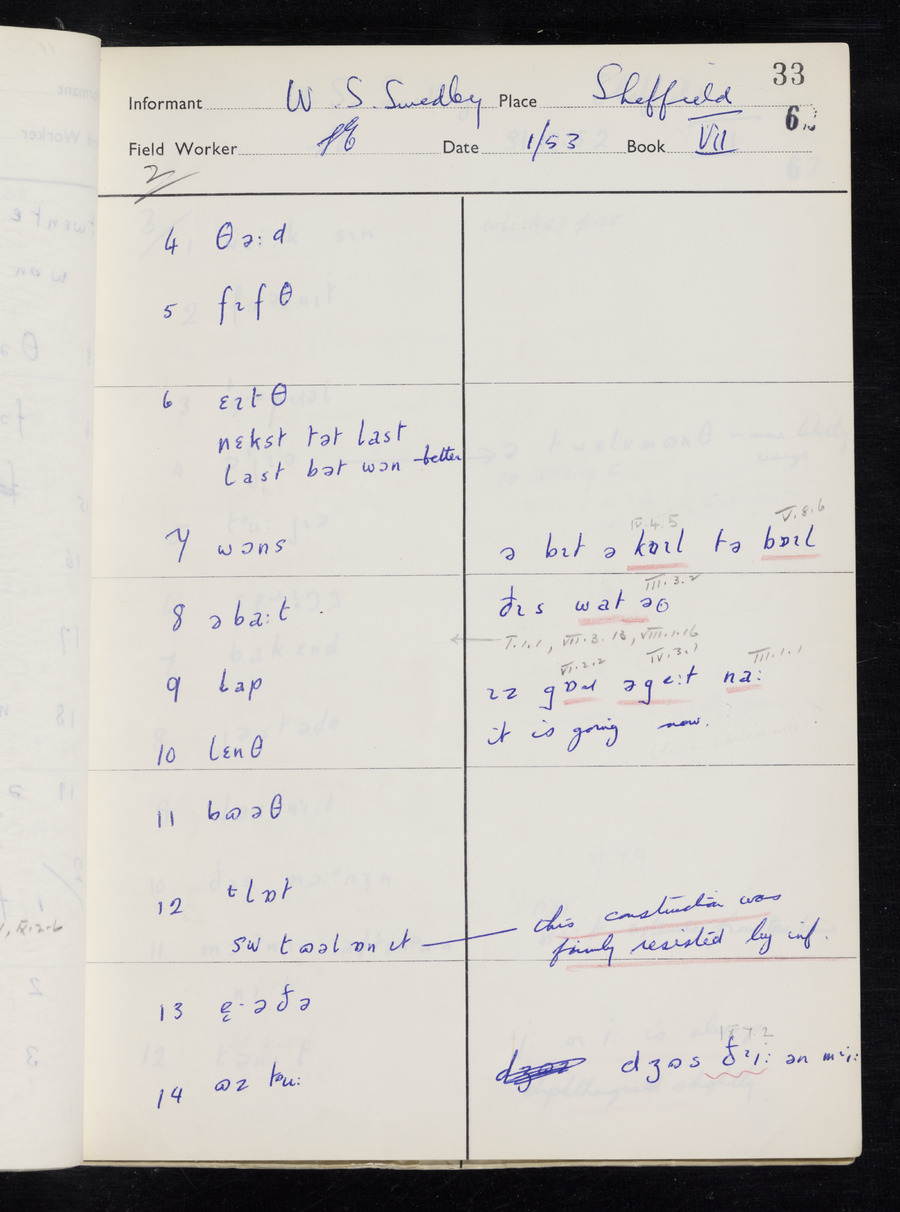 33
Informant W. S. Swedley Place Sheffield
6
Field Worker Date 1/53 Book VII
2
4 θə:d
5 fɪfθ
6 ɛɪtθ
nɛkst tət last
last bət wɔn better
IV.4.5 V.8.6
7 wɔns ə bɪt ə kɒɪl tə bɒɪl
III.3.2
8 əba:t ðɪs wat əʊ
← I.1.1, VII.3.18, VIII.1.16
VI.2.2 IV.3.1 III.1.1
9 lap ɪz gɒɪ əgɛ:t na:
it is going now.
10 lɛnθ
11 bɷəθ
12 tlɒt this construction was
t ɷəl ɒn ɪt firmly resisted by inf.
13 ðə
IX.7.2
14 ɷz tᵊu: dʒɷs ðᵊi: ən mᵊi: